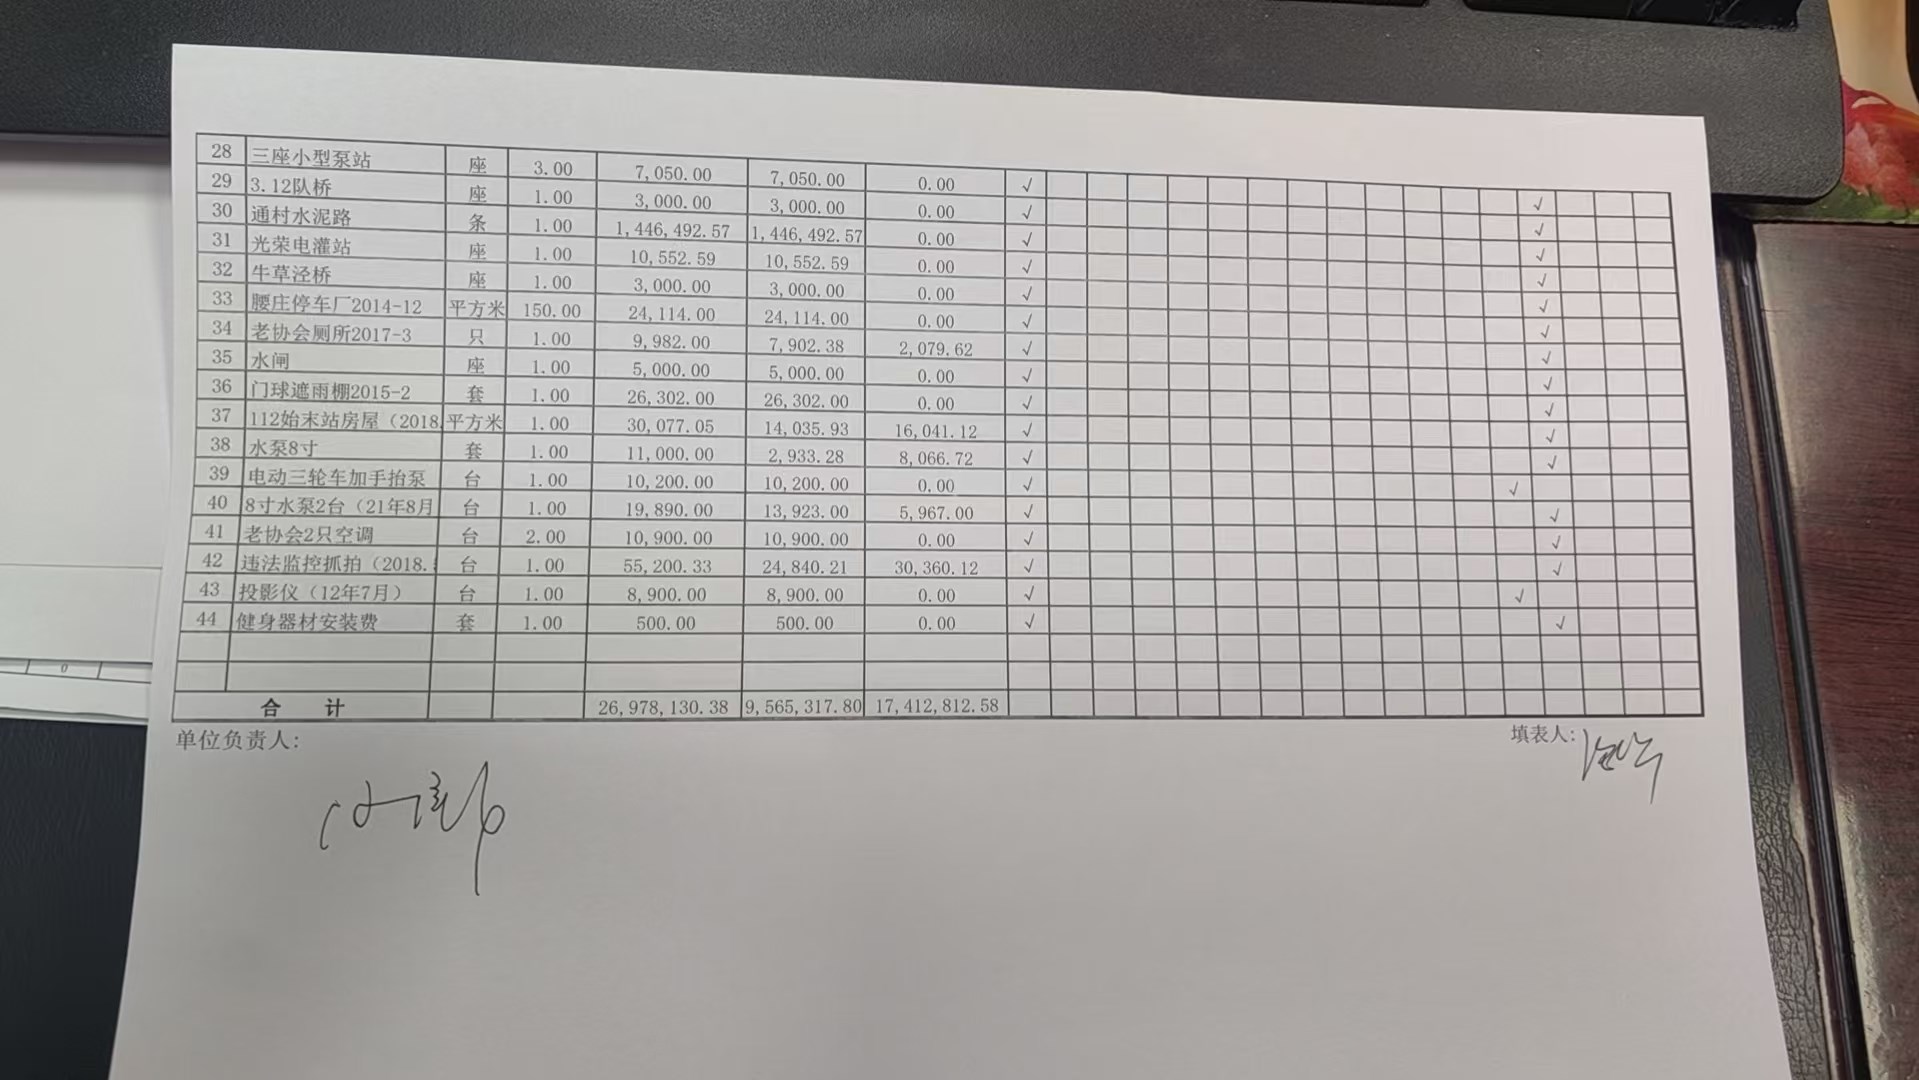 28 三座小型泵站 座 3.00 7,050.00 7,050.00 0.00 √ √
29 3.12队桥 座 1.00 3,000.00 3,000.00 0.00 √ √
30 通村水泥路 条 1.00 1,446,492.57 1,446,492.57 0.00 √ √
31 光荣电灌站 座 1.00 10,552.59 10,552.59 0.00 √ √
32 牛草泾桥 座 1.00 3,000.00 3,000.00 0.00 √ √
33 腰庄停车厂2014-12 平方米 150.00 24,114.00 24,114.00 0.00 √ √
34 老协会厕所2017-3 只 1.00 9,982.00 7,902.38 2,079.62 √ √
35 水闸 座 1.00 5,000.00 5,000.00 0.00 √ √
36 门球遮雨棚2015-2 套 1.00 26,302.00 26,302.00 0.00 √ √
37 112始末站房屋（2018. 平方米 1.00 30,077.05 14,035.93 16,041.12 √ √
38 水泵8寸 套 1.00 11,000.00 2,933.28 8,066.72 √ √
39 电动三轮车加手抬泵 台 1.00 10,200.00 10,200.00 0.00 √ √
40 8寸水泵2台（21年8月 台 1.00 19,890.00 13,923.00 5,967.00 √ √
41 老协会2只空调 台 2.00 10,900.00 10,900.00 0.00 √ √
42 违法监控抓拍（2018. 台 1.00 55,200.33 24,840.21 30,360.12 √ √
43 投影仪（12年7月） 台 1.00 8,900.00 8,900.00 0.00 √ √
44 健身器材安装费 套 1.00 500.00 500.00 0.00 √ √
合 计 26,978,130.38 9,565,317.80 17,412,812.58
单位负责人: 填表人:
0